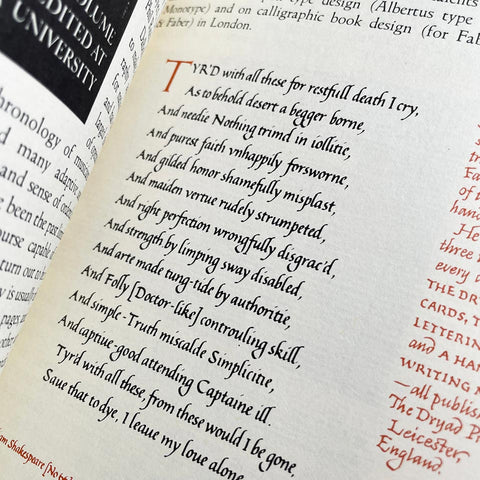 OLUME
EDITED AT
UNIVERSITY
type design (Albertus type
Monotype) and on calligraphic book design (for Fab
& Faber) in London.
TYR'D with all these for restfull death I cry,
As to behold desert a begger borne,
And needie Nothing trimd in iollitie,
And purest faith vnhappily forsworne,
And gilded honor shamefully misplast,
And maiden vertue rudely strumpeted,
And right perfection wrongfully disgrac'd,
And strength by limping sway disabled,
And arte made tung-tide by authoritie,
And Folly [Doctor-like] controuling skill,
And simple-Truth miscalde Simplicitie,
And captiue-good attending Captaine ill.
Tyr'd with all these, from these would I be gone,
Saue that to dye, I leaue my loue alone
Shakespeare [No 66]
hronology of
d many adaptive
and sense of
been the past
ourse capable
turn out to
y is usually
pages
He
three
every
THE DR
CARDS, T
LETTERIN
and A HAN
WRITING M
– all publish
The Dryad P
Leicester,
England.